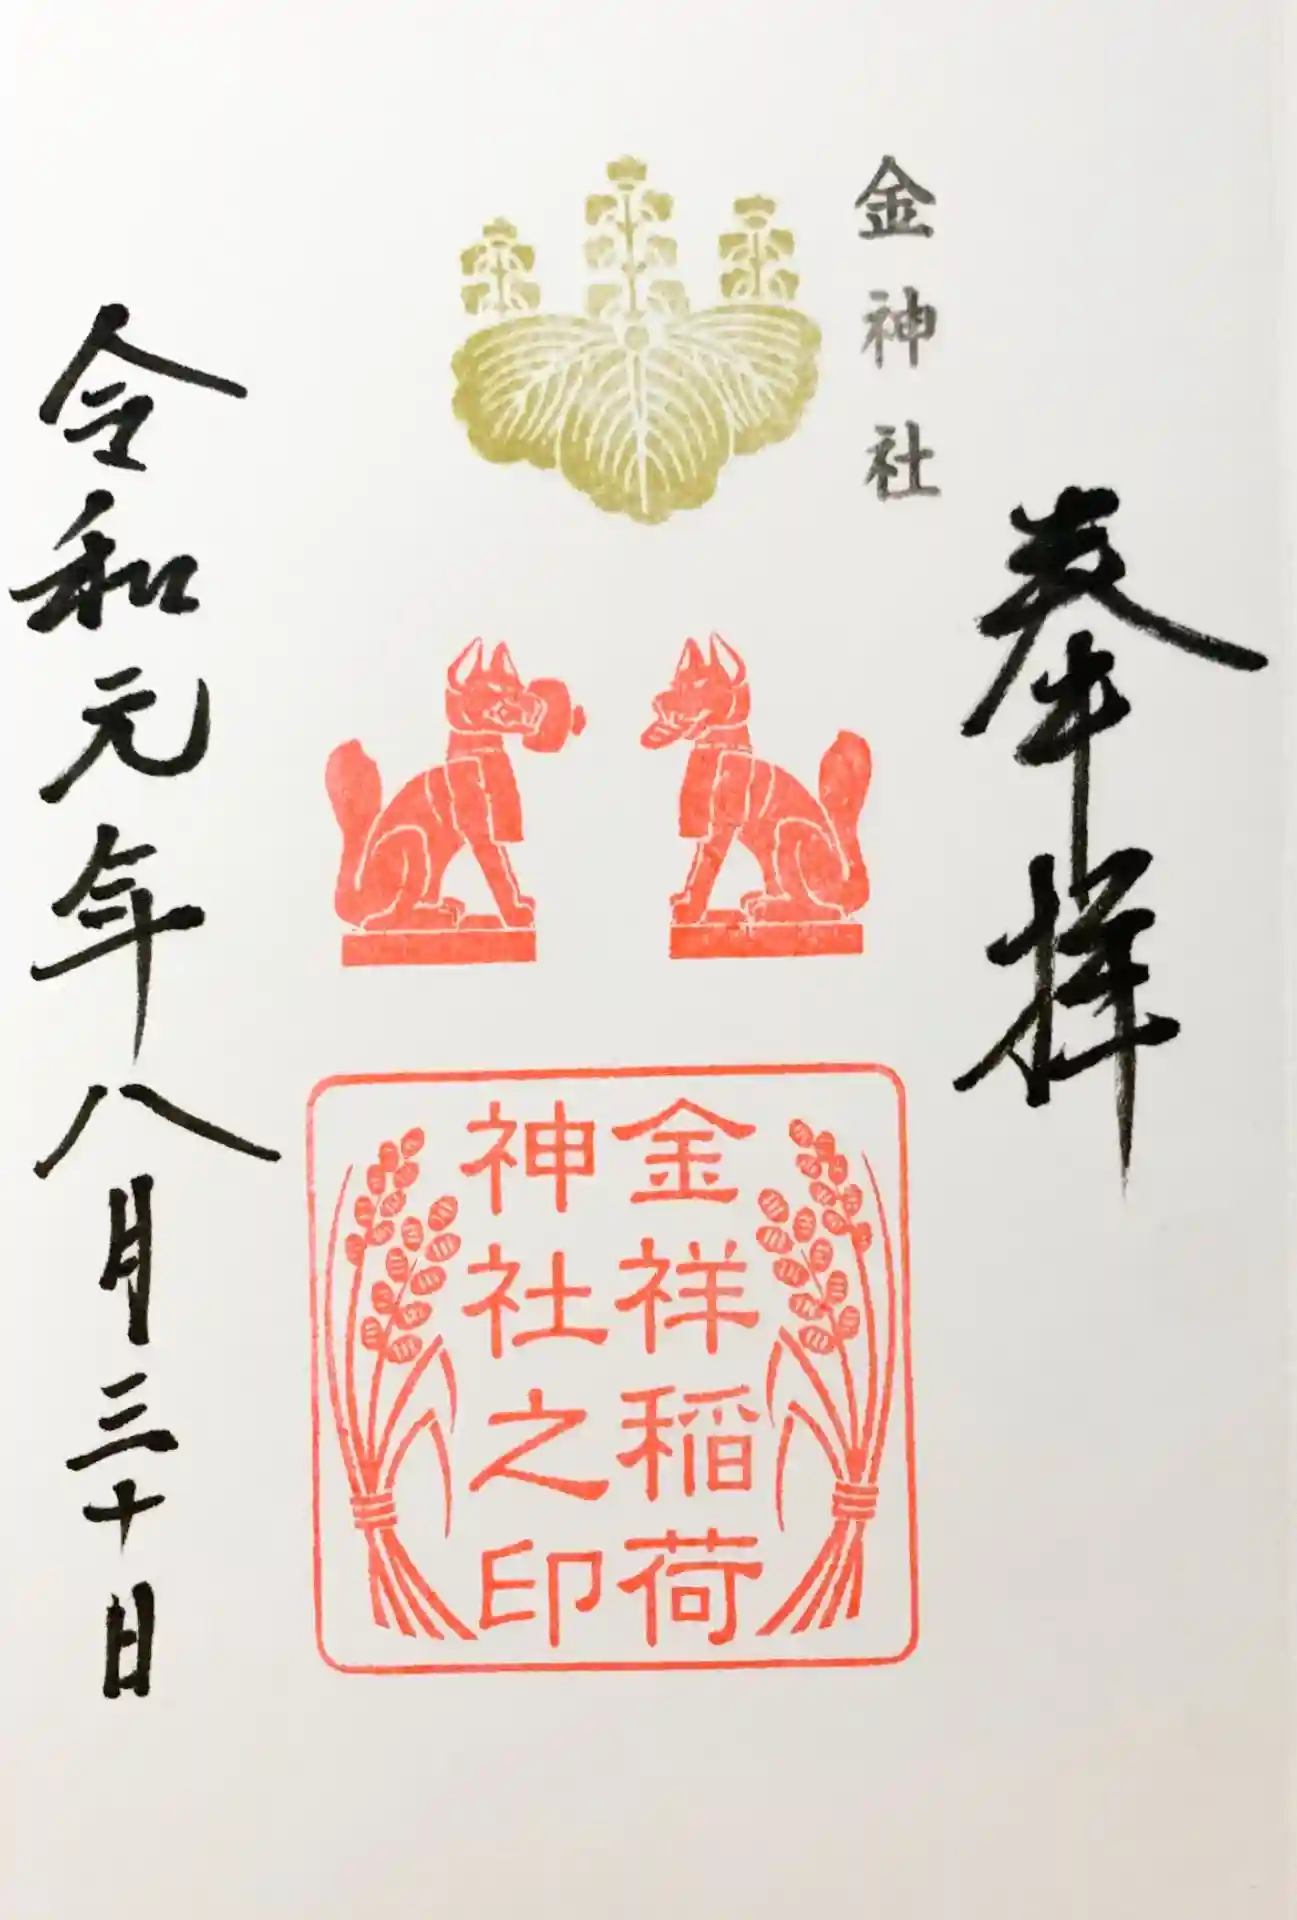 奉拝
金神社
金祥稲荷
神社之印
令和元年八月三十日